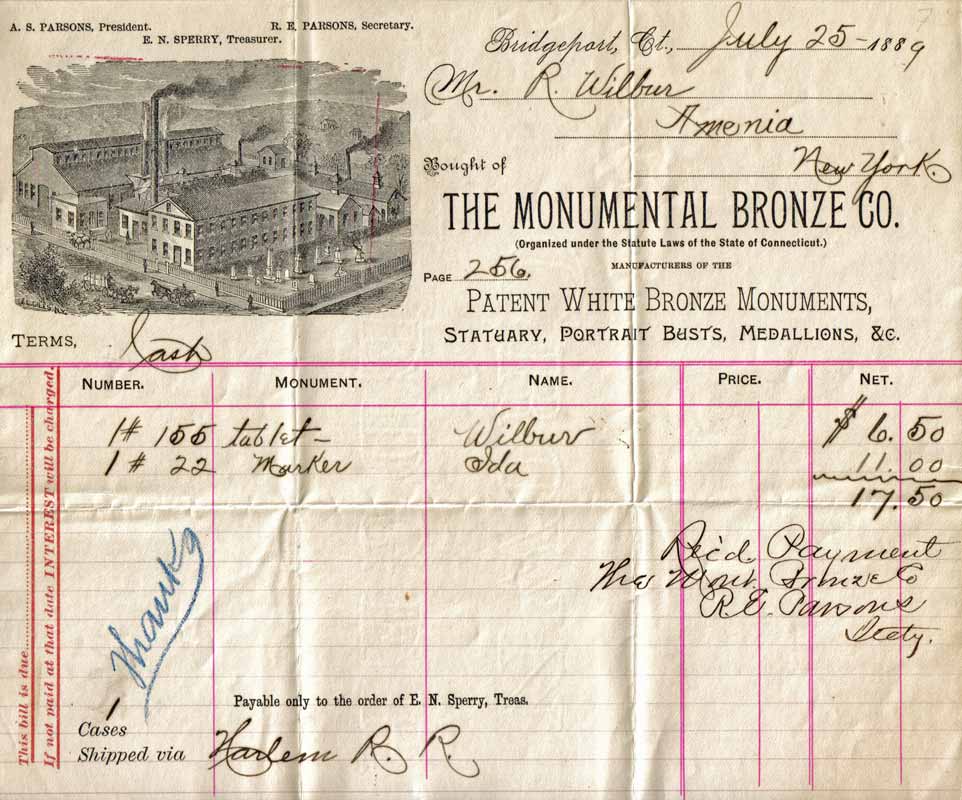 A. S. PARSONS, President.
R. E. PARSONS, Secretary.
E. N. SPERRY, Treasurer.
Bridgeport, Ct., July 25 - 1889
Mr. R. Wilbur
Amenia
New York.
Bought of
THE MONUMENTAL BRONZE CO.
(Organized under the Statute Laws of the State of Connecticut.)
MANUFACTURERS OF THE
PAGE 256.
PATENT WHITE BRONZE MONUMENTS,
STATUARY, PORTRAIT BUSTS, MEDALLIONS, &C.
TERMS, Cash
NUMBER. MONUMENT. NAME. PRICE. NET.
1 # 155 tablet - Wilbur $ 6.50
1 # 22 Marker Ida 11.00
17.50
Rec'd. Payment
The Mont. Bronze Co
R. E. Parsons
Secty.
Thanks
This bill is due
If not paid at that date INTEREST will be charged.
Payable only to the order of E. N. Sperry, Treas.
1
Cases
Shipped via Harlem R. R.